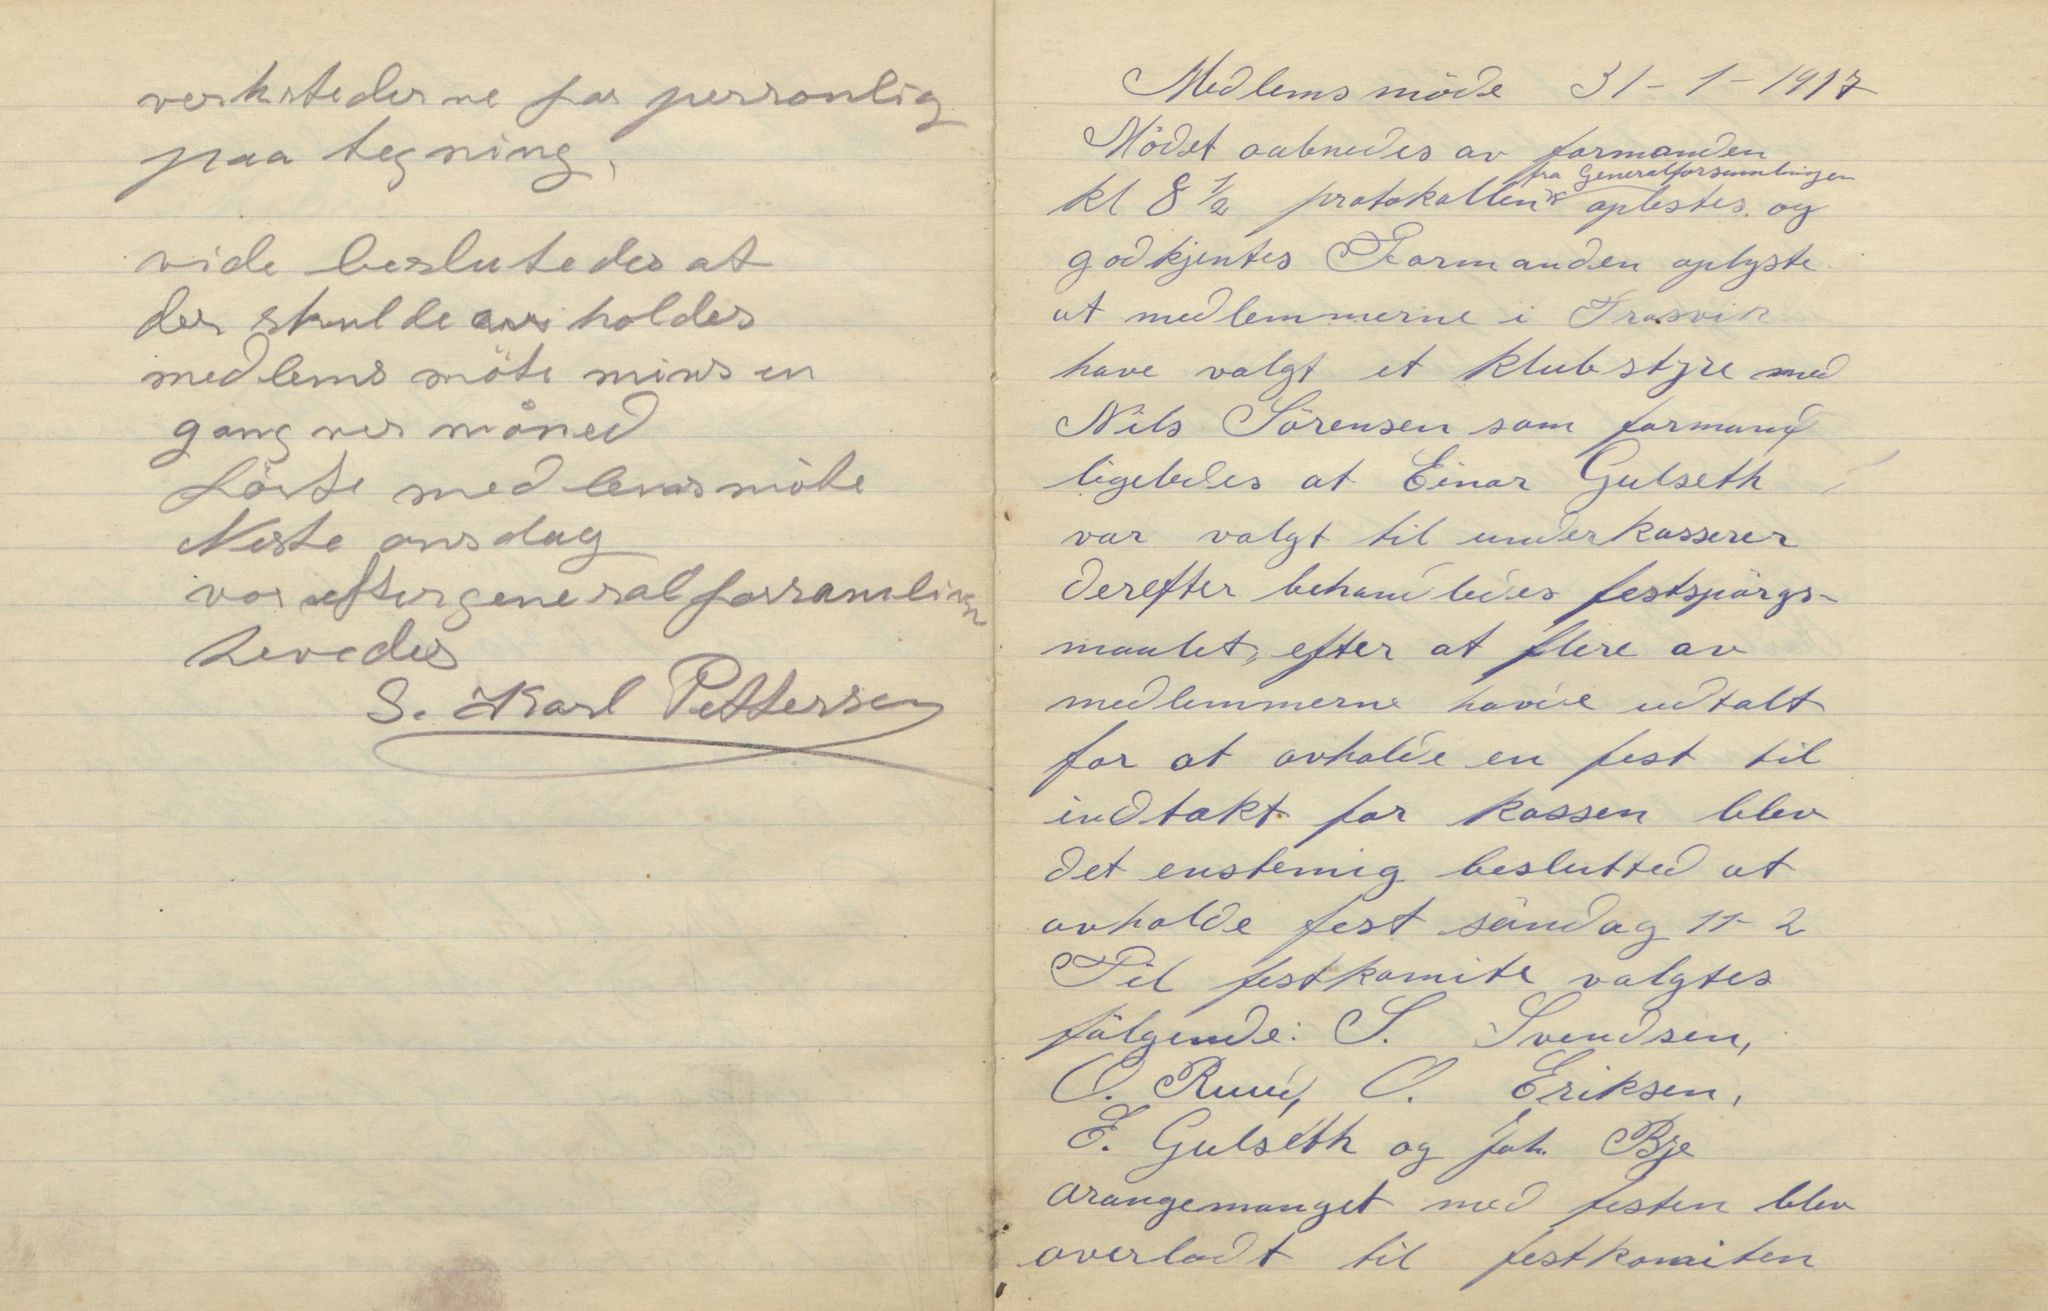 verkstederne for personlig
paa tegning,
vide beslutedes at
der skulde av holdes
medlems möte mins en
gang ver måned
förste medlems möte
Neste onsdag
vor efter generalforsamlingen
hevedes
S. Karl Pettersen
Medlemsmöde 31-1-1917
Mödet aabnedes av formanden
fra Generalforsamlingen
kl 8 1/2 protokollen oplestes og
godkjentes Formanden oplyste
at medlemmerne i Trosvik
have valgt et klubstyre med
Nils Sörensen som formand
ligeledes at Einar Gulseth
var valgt til underkasserer
derefter behandledes festspörgs-
maalet, efter at flere av
medlemmerne havde udtalt
for at avholde en fest til
indtækt for kassen blev
det enstemig beslutted at
avholde fest söndag 11-2
Til festkomite valgtes
fölgende: S. Svendsen,
O. Ruud, O. Eriksen,
E. Gulseth og Joh. Bje
arangemanget med festen blev
overladt til festkomiten